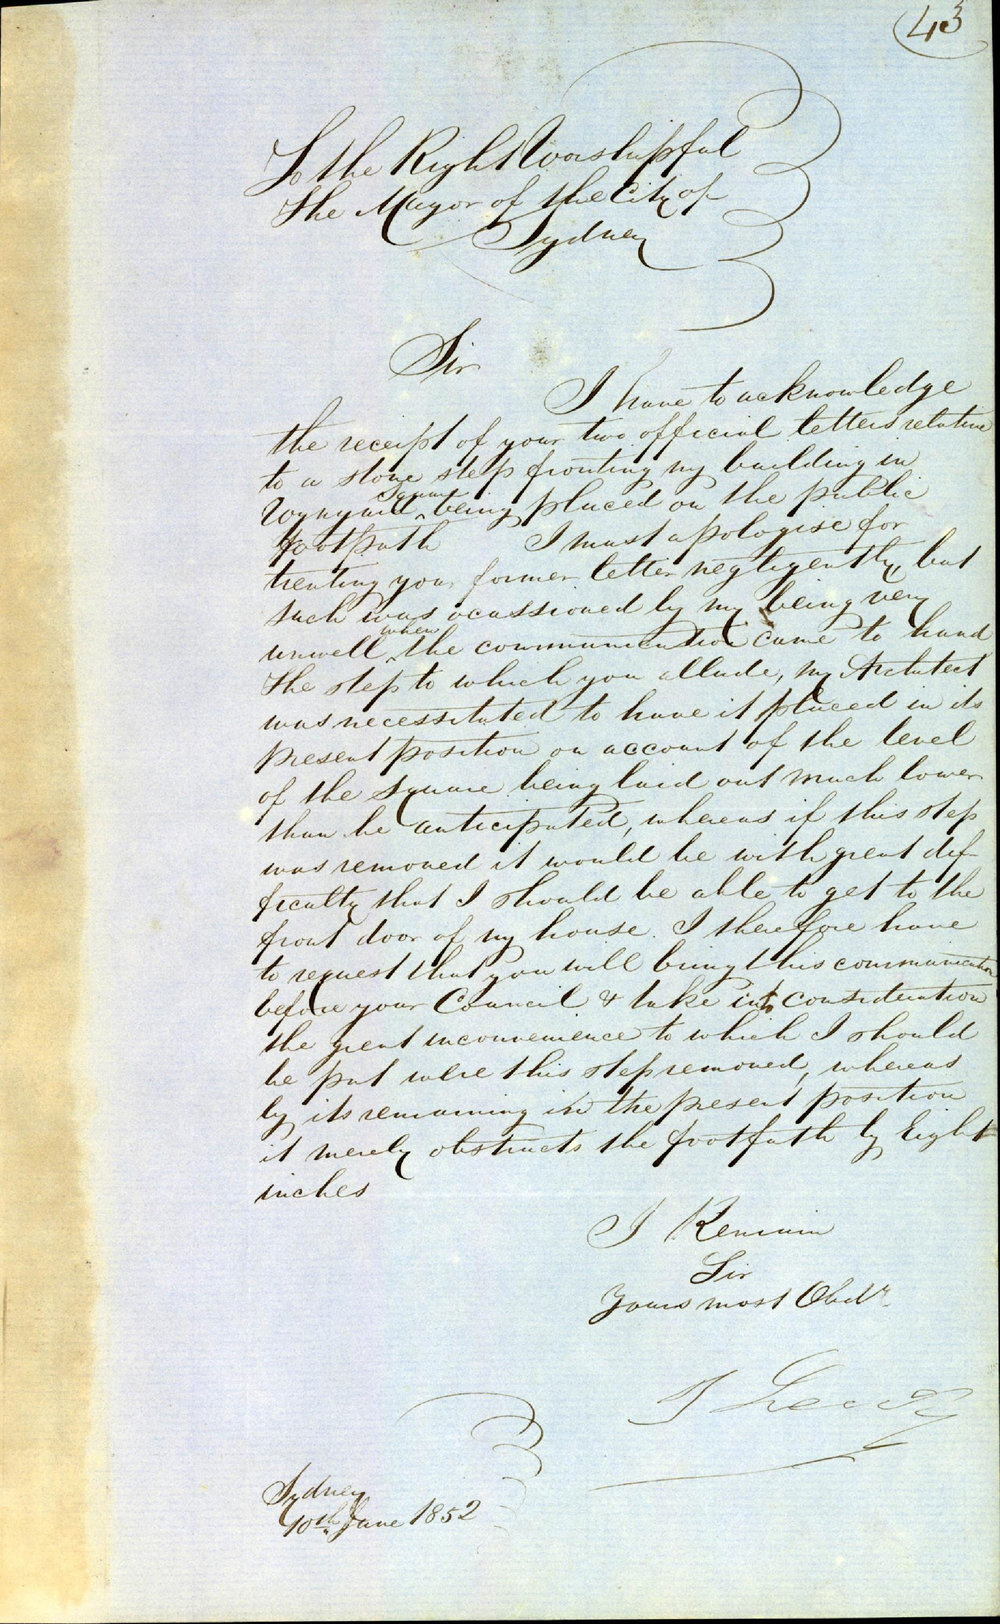 43
To the Right Worshipful
The Mayor of the City of
Sydney
Sir
I have to acknowledge
the receipt of your two official letters relative
to a stone step fronting my building in
Wynyard Square being placed on the public
footpath I must apologise for
treating your former letter negligently, but
such was ocassioned by my being very
unwell when the communication came to hand
The step to which you allude, my Architect
was necessitated to have it placed in its
present position on account of the level
of the Square being laid out much lower
than he anticipated, whereas if this step
was removed it would be with great dif-
ficulty that I should be able to get to the
front door of my house. I therefore have
to request that you will bring this communication
before your Council & take into consideration
the great inconvenience to which I should
be put were this step removed, whereas
by its remaining in the present position
it merely obstructs the footpath by Eight
inches
I Remain
Sir
Yours most Obdt.
Sydney
10th June 1852